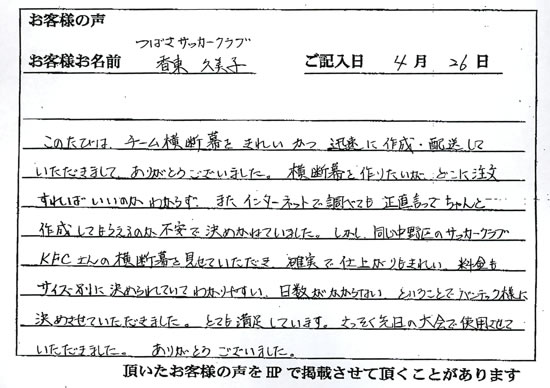 お客様の声
つばさサッカークラブ
お客様お名前 香東 久美子 ご記入日 4月 26日
このたびは、チーム横断幕を きれい かつ 迅速に作成・配送して
いただきまして、ありがとうございました。横断幕を作りたいが、どこに注文
すればいいのか わからず、また インターネットで調べても 正直言って ちゃんと
作成してもらえるのか不安で 決めかねていました。しかし、同じ中野区のサッカークラブ
KFCさんの横断幕を見せていただき、確実で 仕上がりもきれい、料金も
サイズ別に決められていて わかりやすい、日数がかからない、ということで バンテック様に
決めさせていただきました。とても満足しています。さっそく先日の大会で使用させて
いただきました。 ありがとう ございました。
頂いたお客様の声をHPで掲載させて頂くことがあります